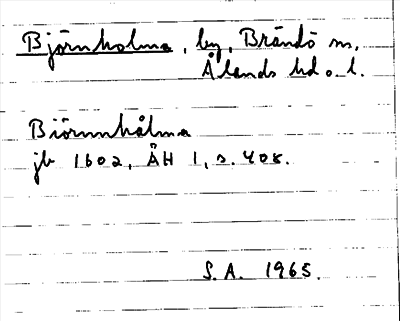 Björnholma, by, Brändö sn,
Ålands hd o. l.
Biörnnhålma
jb 1602, ÄH 1, s. 408.
S. A. 1965.